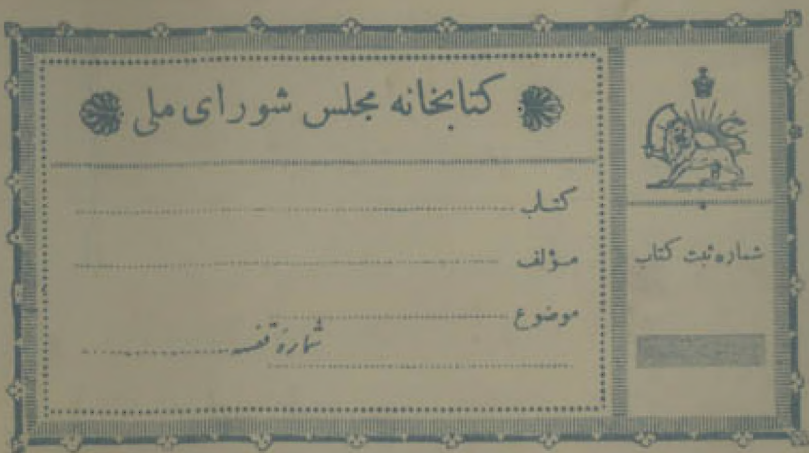 کتابخانه مجلس شورای ملی
کتاب
مؤلف
موضوع
شماره قفسه
شماره ثبت کتاب